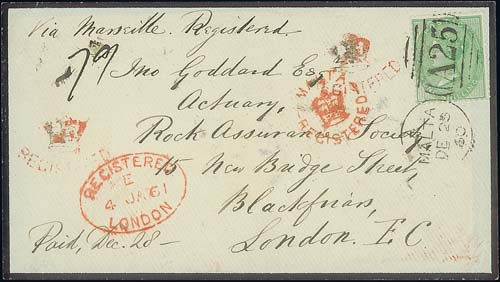 Via Marseille. Registered.
79
Jno Goddard Esq
Actuary,
Rock Assurance Society
15 New Bridge Street,
Blackfriars,
London. E.C
Paid, Dec. 28 —
A25
MALTA
DE 28
60
MALTA
REGISTERED
REGISTERED
REGISTERED
REGISTERED
E
4 JA 61
LONDON